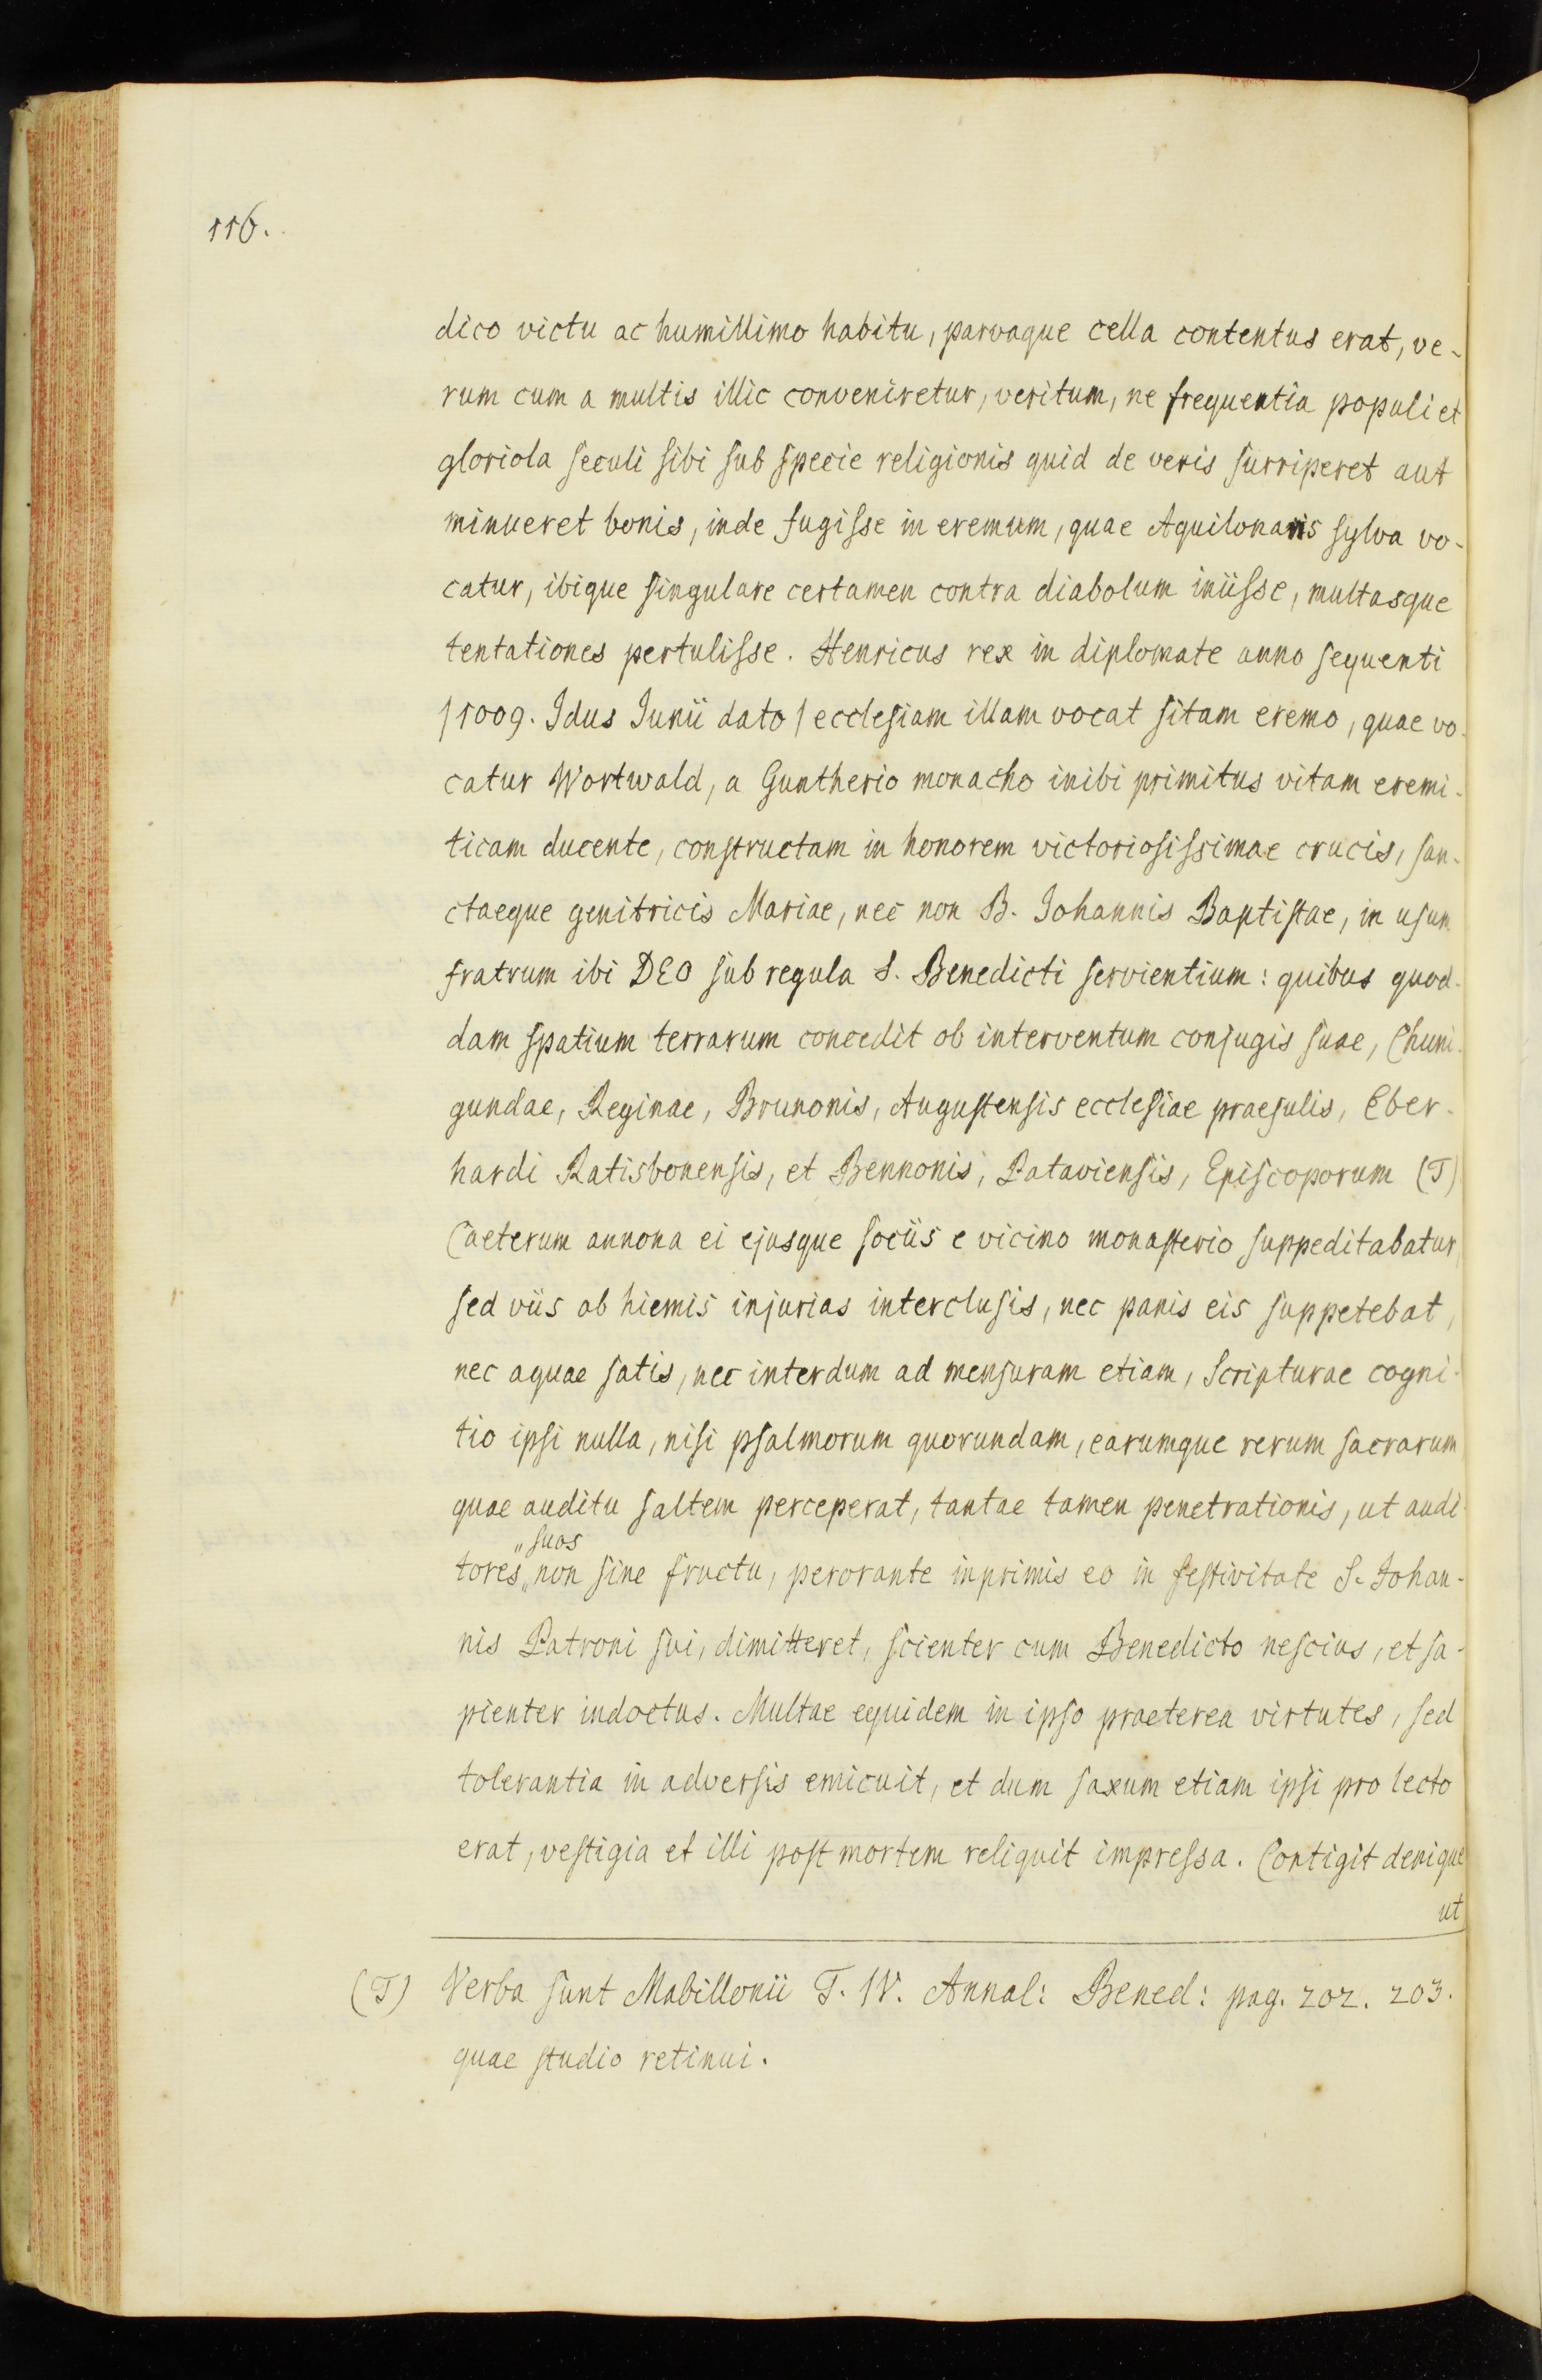 116.
dico victu ac humillimo habitu, parvaque cella contentus erat, ve-
rum cum a multis illic conveniretur, veritum, ne frequentia populi et
gloriola seculi sibi sub specie religionis quid de veris surriperet aut
minueret bonis, inde fugisse in eremum, quae Aquilonaris sylva vo-
catur, ibique singulare certamen contra diabolum iniisse, multasque
tentationes pertulisse. Henricus rex in diplomate anno sequenti
/1009. Idus Iunii dato/ ecclesiam illam vocat sitam eremo, quae vo-
catur Wortwald, a Guntherio monacho inibi primitus vitam eremi-
ticam ducente, constructam in honorem victoriosissimae crucis, san-
ctaeque genitricis Mariae, nec non B. Iohannis Baptistae, in usum
fratrum ibi DEO sub regula S. Benedicti servientium: quibus quod-
dam spatium terrarum concedit ob interventum conjugis suae, Chuni-
gundae, Reginae, Brunonis, Augustensis ecclesiae praesulis, Eber-
hardi Ratisbonensis, et Bennonis, Pataviensis, Episcoporum (T)
Caeterum annona ei ejusque sociis e vicino monasterio suppeditabatur,
sed viis ob hiemis injurias interclusis, nec panis eis suppetebat,
nec aquae satis, nec interdum ad mensuram etiam, Scripturae cogni-
tio ipsi nulla, nisi psalmorum quorundam, earumque rerum sacrarum
quae auditu saltem perceperat, tantae tamen penetrationis, ut audi-
"suos
tores "non sine fructu, perorante inprimis eo in festivitate S. Iohan-
nis Patroni sui, dimitteret, scienter cum Benedicto nescius, et sa-
pienter indoctus. Multae equidem in ipso praeterea virtutes, sed
tolerantia in adversis emicuit, et dum saxum etiam ipsi pro lecto
erat, vestigia et illi post mortem reliquit impressa. Contigit denique
ut
(T) Verba sunt Mabillonii T. IV. Annal: Bened: pag. 202. 203.
quae studio retinui.